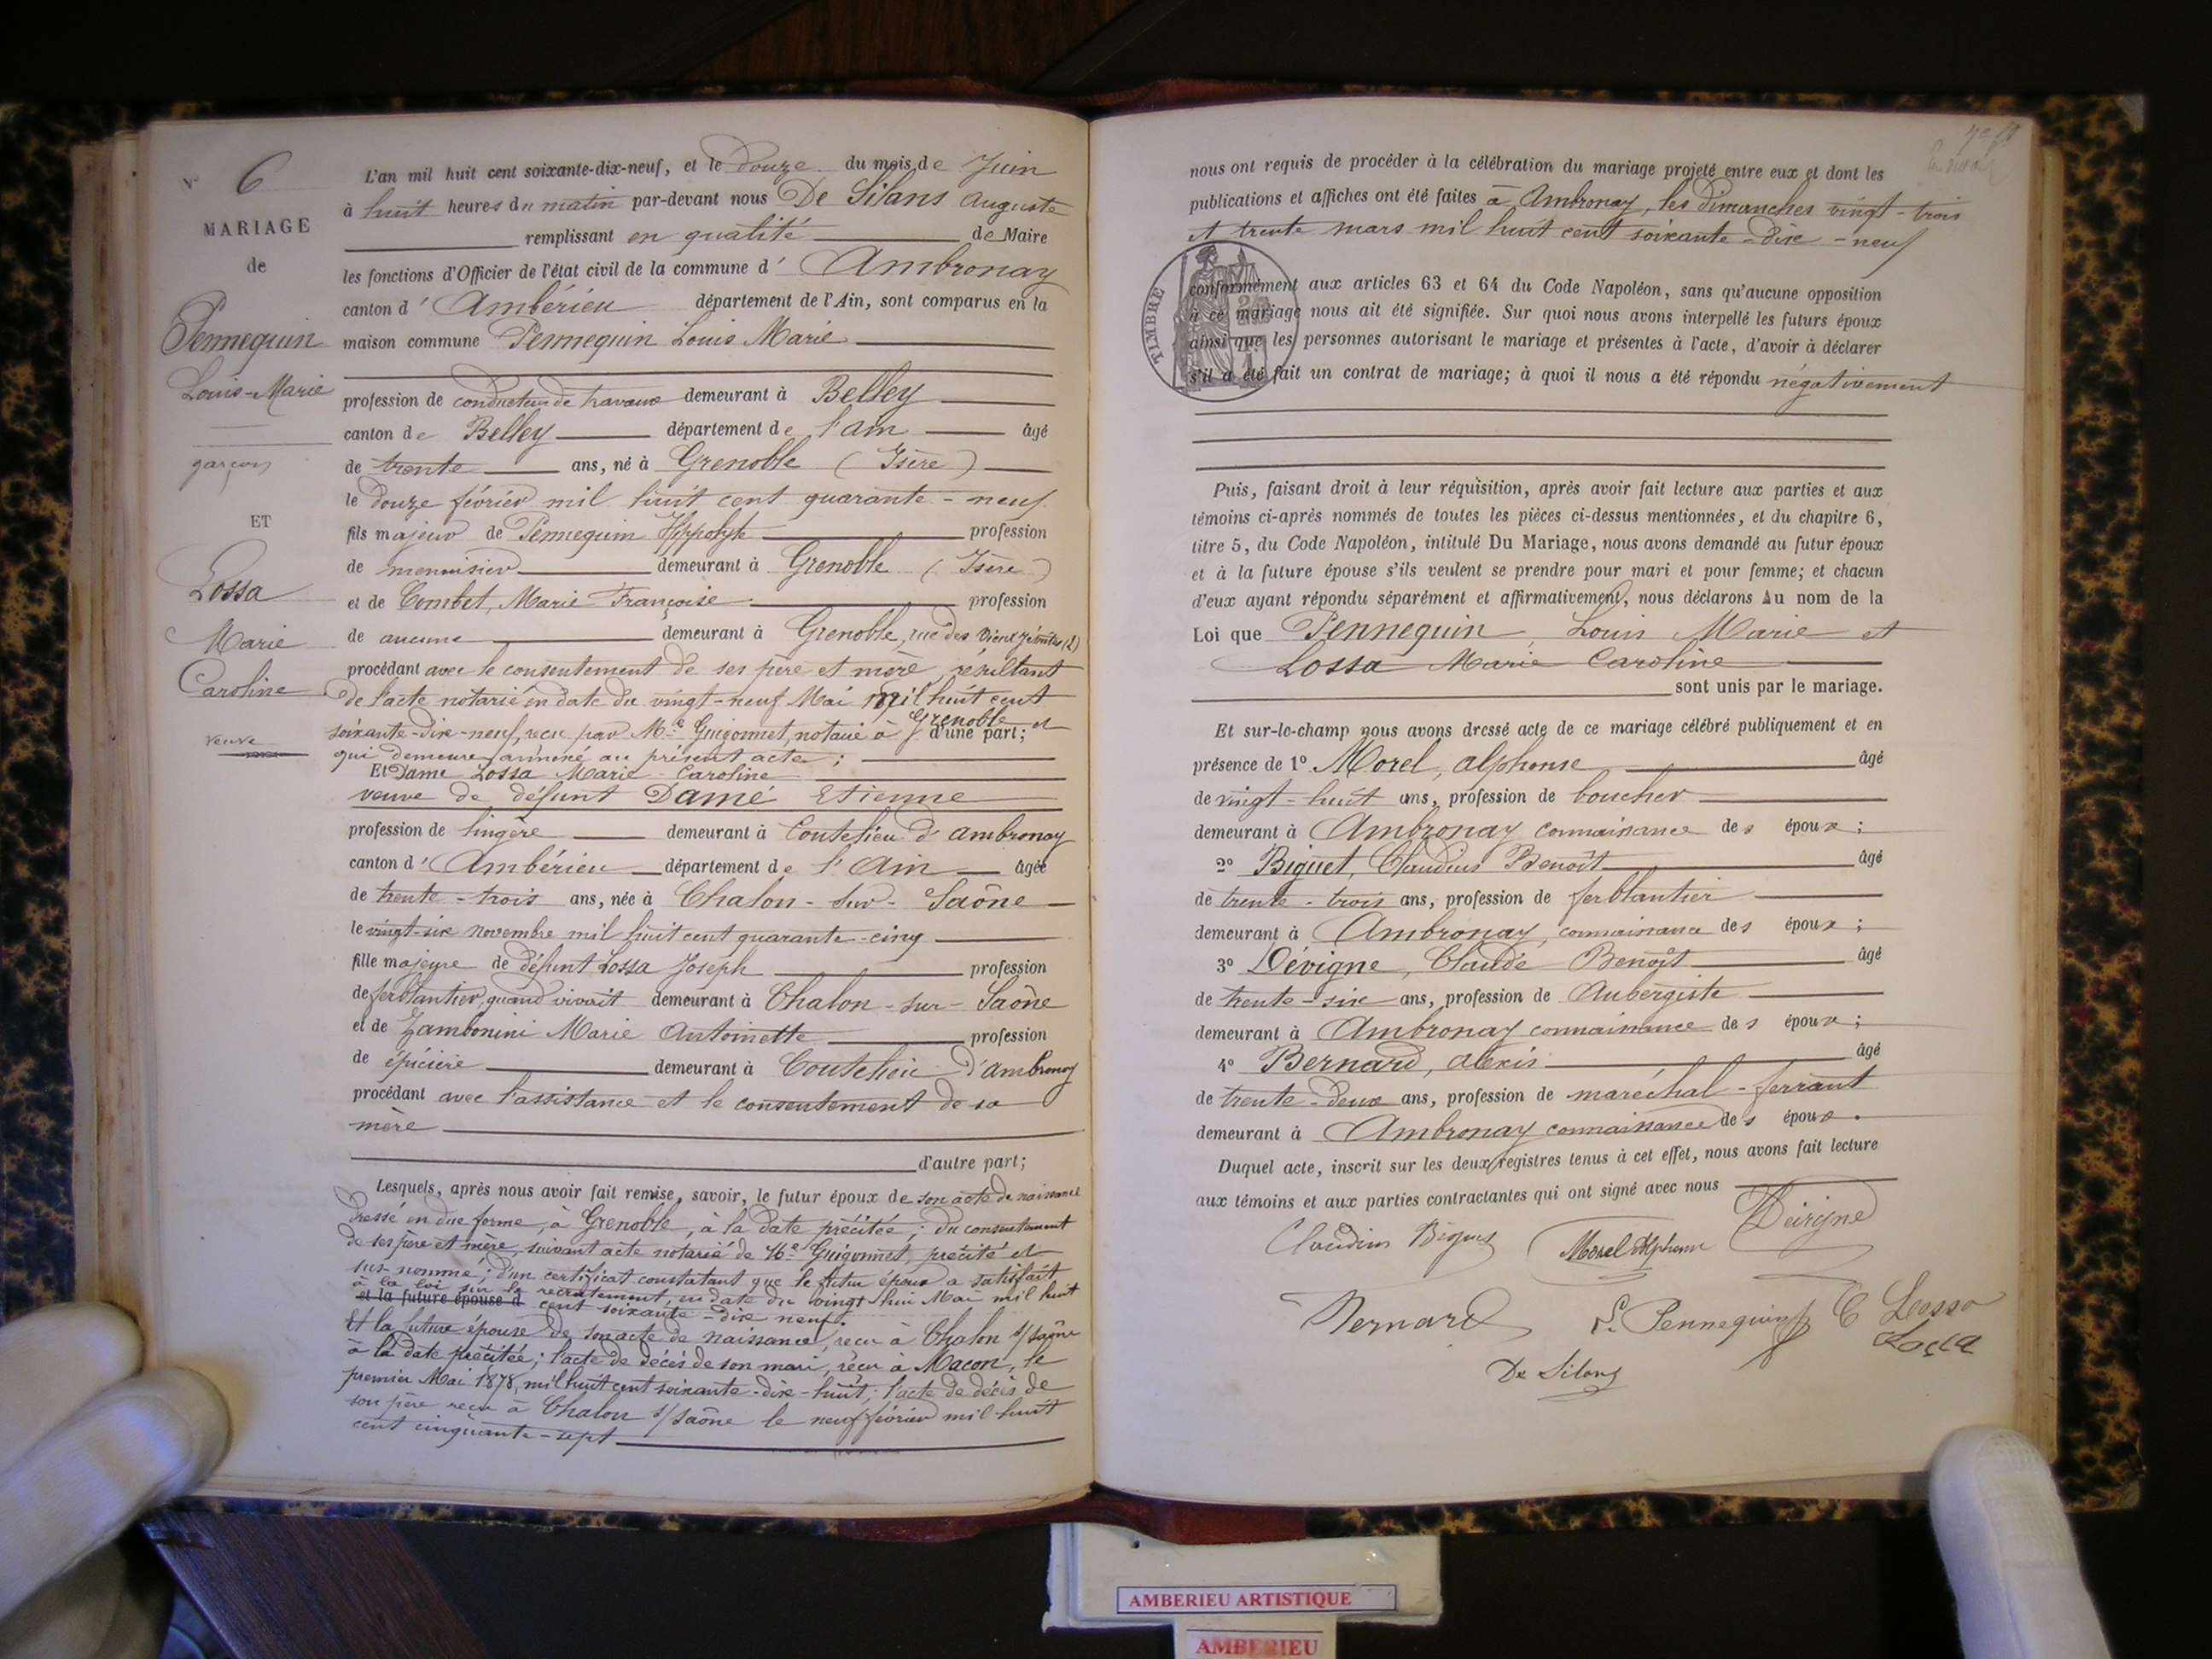 N° 6
MARIAGE
de
Pennequin
Louis-Marie
garçon
ET
Lossa
Marie
Caroline
veuve
L'an mil huit cent soixante-dix-neuf, et le douze du mois de Juin
à huit heures du matin par-devant nous De Silans Auguste
remplissant en qualité de Maire
les fonctions d'Officier de l'état civil de la commune d' Ambronay
canton d' Ambérieu département de l'Ain, sont comparus en la
maison commune Pennequin Louis Marie
profession de conducteur de travaux demeurant à Belley
canton de Belley département de l'ain âgé
de trente ans, né à Grenoble (Isère)
le douze février mil huit cent quarante-neuf
fils majeur de Pennequin Hyppolyte profession
de menuisier demeurant à Grenoble (Isère)
et de Combet, Marie Françoise profession
de aucune demeurant à Grenoble, rue des Vieux Jésuites
procédant avec le consentement de ses père et mère, résultant
de l'acte notarié en date du vingt-neuf Mai mil huit cent
soixante-dix-neuf, recu par Me Guigonnet, notaire à Grenoble et d'une part;
qui demeure annéxé au présent acte;
Et Dame Lossa Marie Caroline
veuve de défunt Damé Etienne
profession de lingère demeurant à Coutelieu d'ambronay
canton d' Ambérieu département de l'Ain âgée
de trente-trois ans, née à Chalon-sur-Saône
le vingt-six novembre mil huit cent quarante-cinq
fille majeure de défunt Lossa Joseph profession
de ferblantier, quand vivait demeurant à Chalon-sur-Saône
et de Zambonini Marie Antoinette profession
de épicière demeurant à Coutelieu d'ambronay
procédant avec l'assistance et le consentement de sa
mère
d'autre part;
Lesquels, après nous avoir fait remise, savoir, le futur époux de son acte de naissance
dressé en due forme, à Grenoble, à la date précitée; du consentement
de ses père et mère, suivant acte notarié de Me Guigonnet, précité et
sus-nommé; d'un certificat constatant que le futur époux a satisfait
à la loi sur le recrutement, en date du vingt huit Mai mil huit
et la future épouse d cent soixante-dix neuf.
Et la future épouse de son acte de naissance, recu à Chalon s/saône
à la date précitée; l'acte de décès de son mari, recu à Macon, le
premier Mai 1878, mil huit cent soixante-dix-huit; l'acte de décès de
son père recu à Chalon s/saône le neuf février mil-huit
cent cinquante-sept
nous ont requis de procéder à la célébration du mariage projeté entre eux et dont les
publications et affiches ont été faites à Ambronay, les dimanches vingt-trois
et trente mars mil huit cent soixante-dix-neuf
TIMBRE
conformément aux articles 63 et 64 du Code Napoléon, sans qu'aucune opposition
à ce mariage nous ait été signifiée. Sur quoi nous avons interpellé les futurs époux
ainsi que les personnes autorisant le mariage et présentes à l'acte, d'avoir à déclarer
s'il a été fait un contrat de mariage; à quoi il nous a été répondu négativement
Puis, faisant droit à leur réquisition, après avoir fait lecture aux parties et aux
témoins ci-après nommés de toutes les pièces ci-dessus mentionnées, et du chapitre 6,
titre 5, du Code Napoléon, intitulé Du Mariage, nous avons demandé au futur époux
et à la future épouse s'ils veulent se prendre pour mari et pour femme; et chacun
d'eux ayant répondu séparément et affirmativement, nous déclarons Au nom de la
Loi que Pennequin, Louis Marie et
Lossa Marie Caroline
sont unis par le mariage.
Et sur-le-champ nous avons dressé acte de ce mariage célébré publiquement et en
présence de 1° Morel, alphonse âgé
de vingt-huit ans, profession de boucher
demeurant à Ambronay connaissance des époux;
2° Biguet, Claudius Benoit âgé
de trente-trois ans, profession de ferblantier
demeurant à Ambronay, connaissance des époux;
3° Dévigne, Claude Benoît âgé
de trente-six ans, profession de Aubergiste
demeurant à Ambronay connaissance des époux;
4° Bernard, alexis âgé
de trente-deux ans, profession de maréchal-ferrant
demeurant à Ambronay connaissance des époux.
Duquel acte, inscrit sur les deux registres tenus à cet effet, nous avons fait lecture
aux témoins et aux parties contractantes qui ont signé avec nous
Claudius Biguet Morel Alphonse Dévigne
Bernard L. Pennequin C Lossa
Lossa
De Silans
AMBERIEU ARTISTIQUE
AMBERIEU